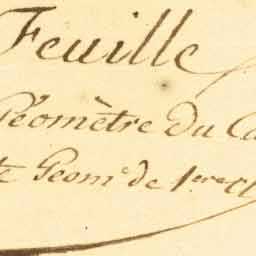 Feuille
Géomètre du Ca
te Geom.e de 1.ere Cl